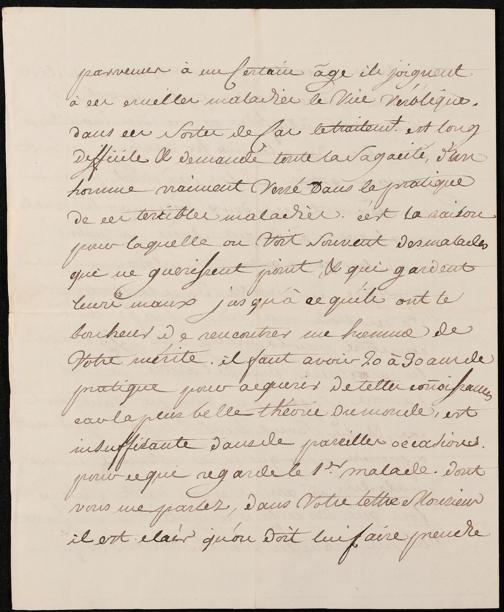 parvenus à un Certain âge ils joignent
à ces cruelles maladies le Vice Vérolique.
dans ces sortes de Cas le traitemt. est long
difficile & demande toute la Sagacité, d'un
homme vraiment Versé Dans la pratique
de ces terribles maladies. c'est la raison
pour laquelle on Voit Souvent des malades
qui ne guerissent point, & qui gardent
leurs maux jusqu'à ce qu'ils ont le
bonheur de rencontrer un homme de
Votre mérite. il faut avoir 20 à 30 ans de
pratique pour acquerir de telles conoissances
car la plus belle théorie du monde, est
insuffisante dans de pareilles occasions.
pour ce qui regarde le 1er malade. dont
vous me parlez, dans Votre lettre Monsieur
il est clair qu'on doit lui faire prendre